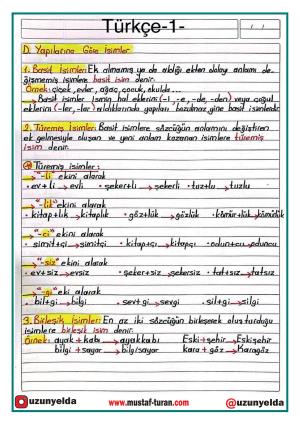 Türkçe-1-
D. Yapılarına Göre İsimler
1. Basit İsimler: Ek almamış ya da aldığı ekten dolayı anlamı de-
ğişmemiş isimlere basit isim denir.
Örnek: çiçek, evler, ağaç, çocuk, okulda...
Basit isimler ismin hal eklerini (-i, -e, -de, -den) veya çoğul
eklerini (-ler, -lar) aldıklarında yapıları bozulmaz, yine basit isimlerdir.
2. Türemiş İsimler: Basit isimlere sözcüğün anlamını değiştiren
ek gelmesiyle oluşan ve yeni anlam kazanan isimlere türemiş
isim denir.
Türemiş isimler:
→"-li" ekini alarak
• ev+li → evli • şeker+li → şekerli • tuz+lu → tuzlu
→"-lik" ekini alarak
• kitap+lık → kitaplık • göz+lük → gözlük • kömür+lük → kömürlük
→"-ci" ekini alarak
• simit+çi → simitçi • kitap+çı → kitapçı • odun+cu → oduncu
→"-siz" ekini alarak
• ev+siz → evsiz • şeker+siz → şekersiz • tat+sız → tatsız
→"-gi" eki alarak
• bil+gi → bilgi • sev+gi → sevgi • sil+gi → silgi
3. Birleşik İsimler: En az iki sözcüğün birleşerek oluşturduğu
isimlere birleşik isim denir.
Örnek: ayak + kabı → ayakkabı Eski + şehir → Eskişehir
bilgi + sayar → bilgisayar kara + göz → Karagöz
uzunyelda www.mustaf-turan.com @uzunyelda